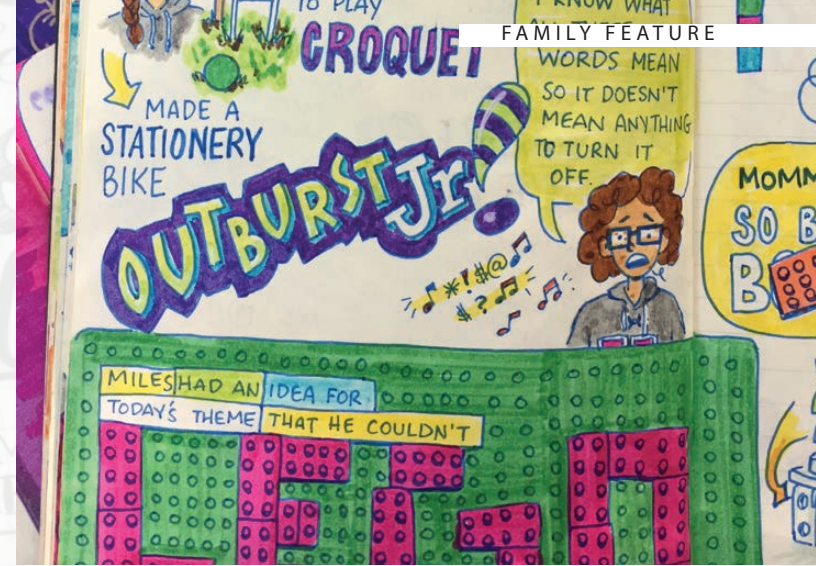 TO PLAY
CROQUET
FAMILY FEATURE
I KNOW WHAT
WORDS MEAN
SO IT DOESN'T
MEAN ANYTHING
TO TURN IT
OFF.
MADE A
STATIONERY
BIKE
OUTBURST Jr.
*!$#@
$?
MOMM
SO B
B
MILES HAD AN IDEA FOR
TODAY'S THEME THAT HE COULDN'T
LEGO